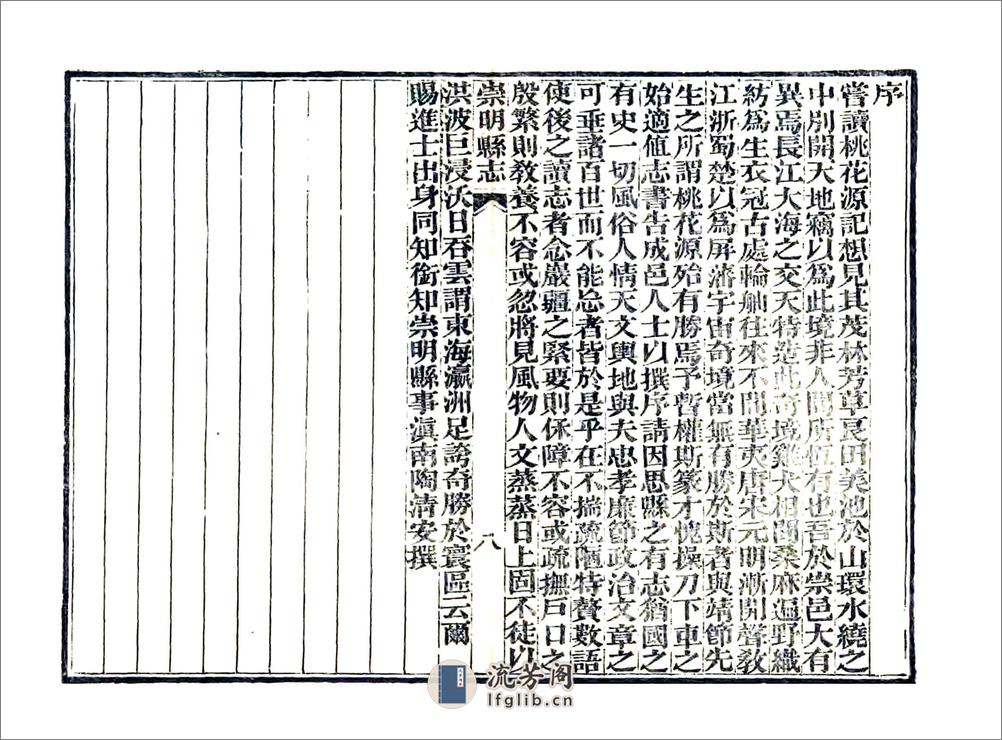 序
嘗讀桃花源記想見其茂林芳草良田美池於山環水繞之
中別開天地竊以爲此境非人間所恆有也吾於崇邑大有
異焉長江大海之交天特造此奇境雞犬相聞桑麻遍野織
紡爲生衣冠古處輪舳往來不間華夷唐宋元明漸開聲敎
江浙蜀楚以爲屏藩宇宙奇境當無有勝於斯者與靖節先
生之所謂桃花源殆有勝焉予暫權斯篆才愧操刀下車之
始適値志書告成邑人士以撰序請因思縣之有志猶國之
有史一切風俗人情天文輿地與夫忠孝廉節政治文章之
可垂諸百世而不能忘者皆於是乎在不揣疏陋特贅數語
使後之讀志者念巖疆之緊要則保障不容或疏撫戶口之
殷繁則敎養不容或忽將見風物人文蒸蒸日上固不徒以
崇明縣志
八
洪波巨浸沃日吞雲謂東海瀛洲足誇奇勝於寰區云爾
賜進士出身同知銜知崇明縣事滇南陶清安撰
流芳阁
lfglib.cn